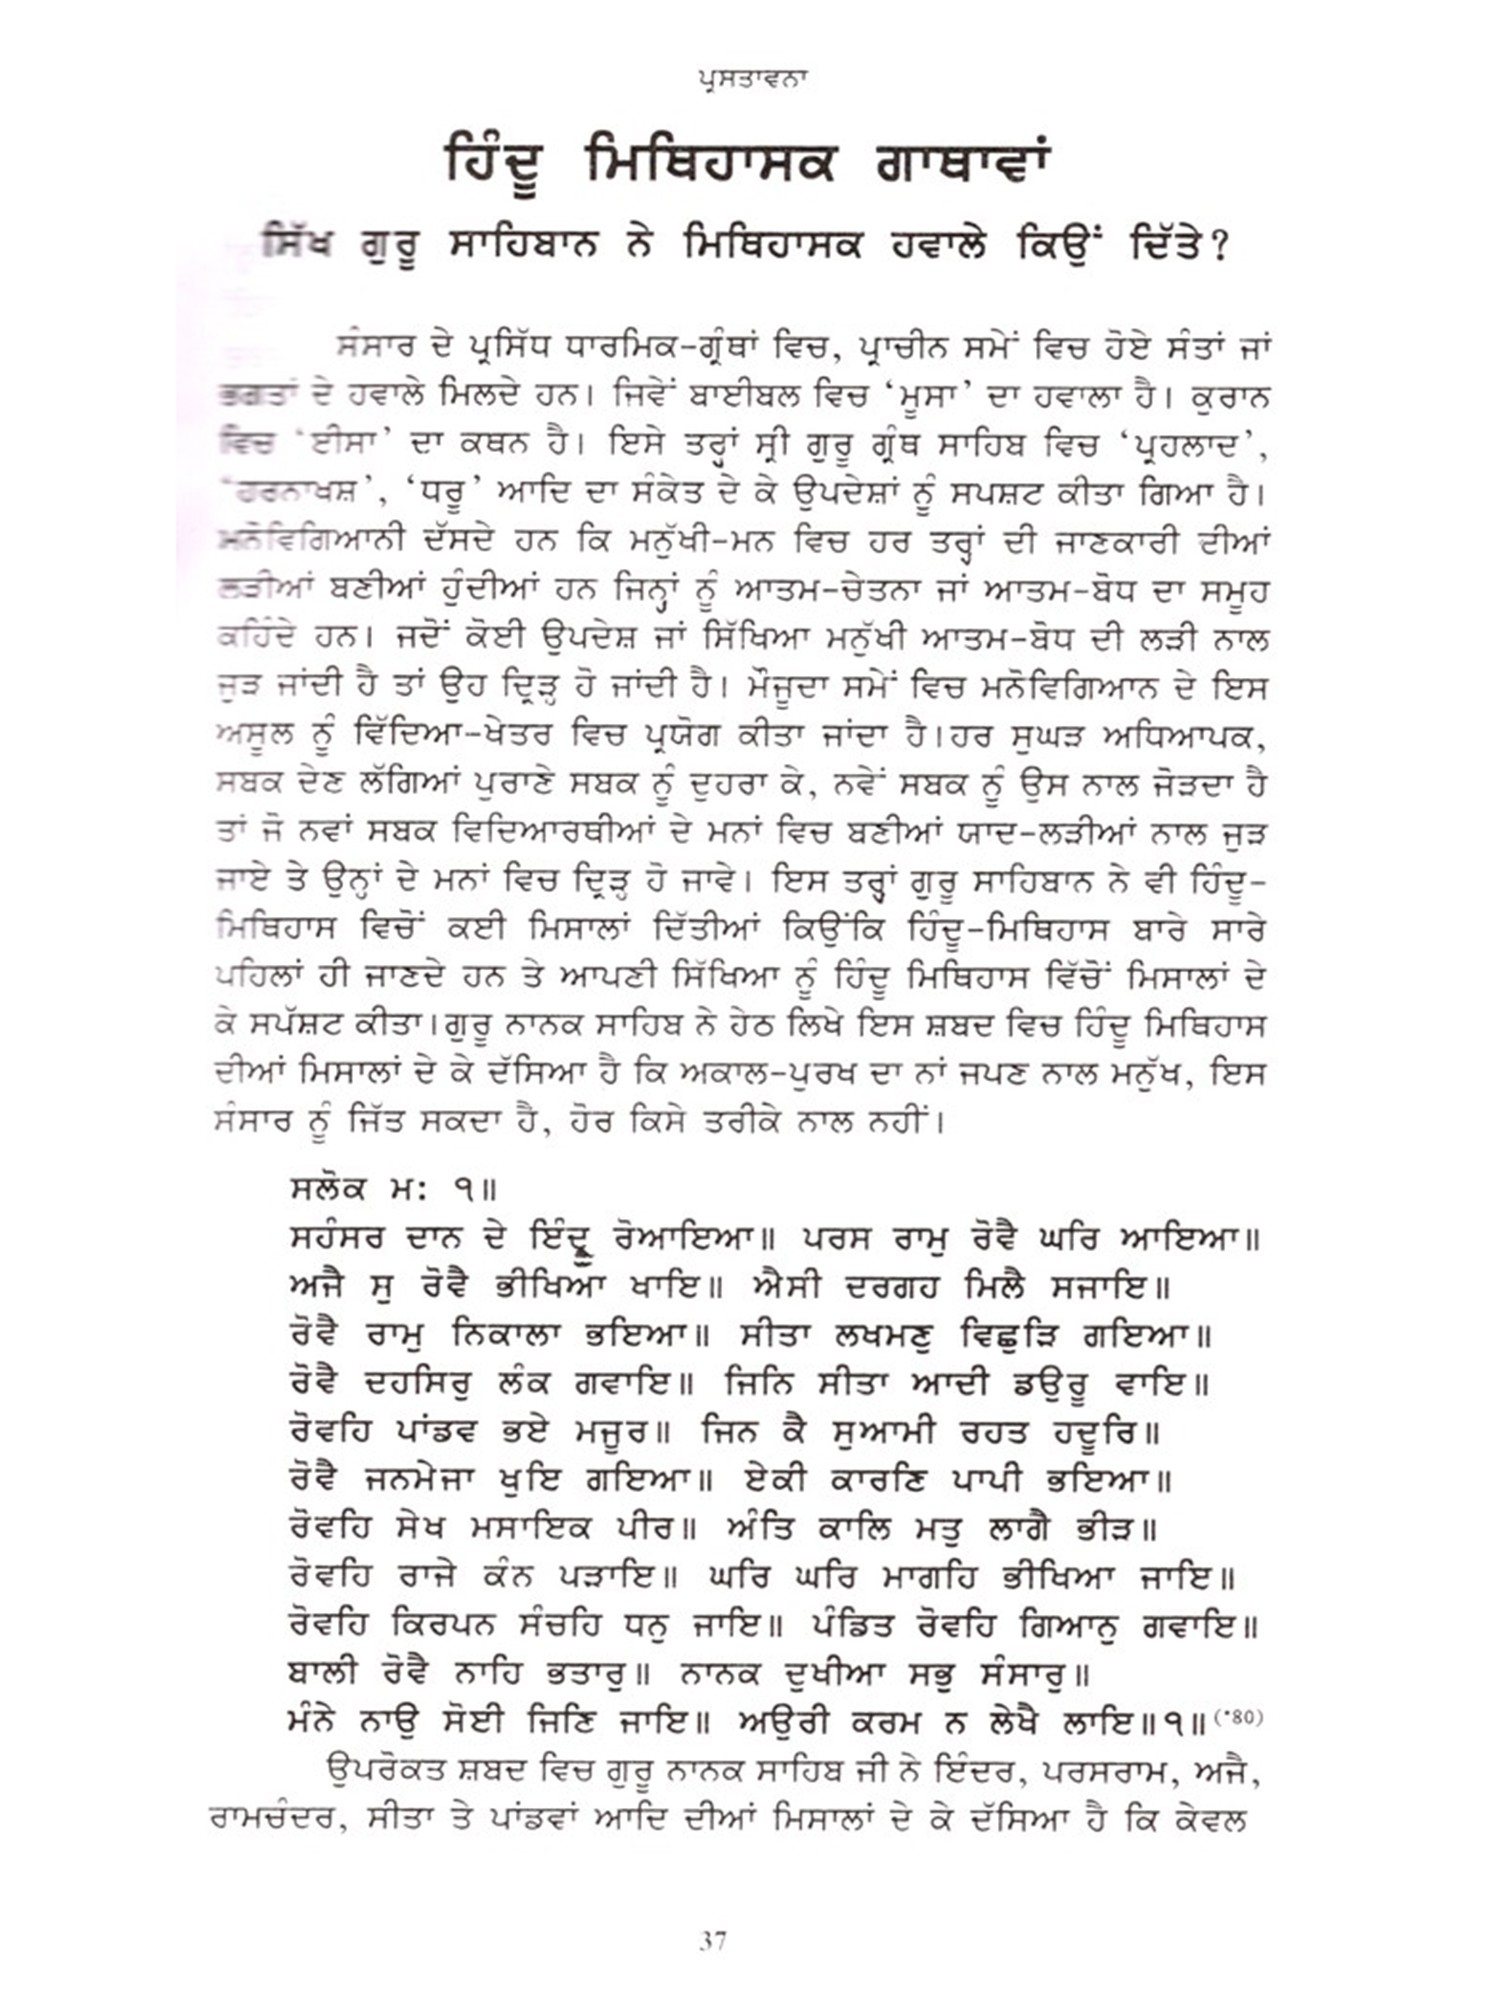 ਪ੍ਰਸਤਾਵਨਾ
ਹਿੰਦੂ ਮਿਥਿਹਾਸਕ ਗਾਥਾਵਾਂ
ਸਿੱਖ ਗੁਰੂ ਸਾਹਿਬਾਨ ਨੇ ਮਿਥਿਹਾਸਕ ਹਵਾਲੇ ਕਿਉਂ ਦਿੱਤੇ?
ਸੰਸਾਰ ਦੇ ਪ੍ਰਸਿੱਧ ਧਾਰਮਿਕ-ਗ੍ਰੰਥਾਂ ਵਿਚ, ਪ੍ਰਾਚੀਨ ਸਮੇਂ ਵਿਚ ਹੋਏ ਸੰਤਾਂ ਜਾਂ
ਭਗਤਾਂ ਦੇ ਹਵਾਲੇ ਮਿਲਦੇ ਹਨ। ਜਿਵੇਂ ਬਾਈਬਲ ਵਿਚ ‘ਮੂਸਾ’ ਦਾ ਹਵਾਲਾ ਹੈ। ਕੁਰਾਨ
ਵਿਚ ‘ਈਸਾ’ ਦਾ ਕਥਨ ਹੈ। ਇਸੇ ਤਰ੍ਹਾਂ ਸ੍ਰੀ ਗੁਰੂ ਗ੍ਰੰਥ ਸਾਹਿਬ ਵਿਚ ‘ਪ੍ਰਹਲਾਦ’,
‘ਹਰਨਾਖਸ਼’, ‘ਧਰੂ’ ਆਦਿ ਦਾ ਸੰਕੇਤ ਦੇ ਕੇ ਉਪਦੇਸ਼ਾਂ ਨੂੰ ਸਪਸ਼ਟ ਕੀਤਾ ਗਿਆ ਹੈ।
ਮਨੋਵਿਗਿਆਨੀ ਦੱਸਦੇ ਹਨ ਕਿ ਮਨੁੱਖੀ-ਮਨ ਵਿਚ ਹਰ ਤਰ੍ਹਾਂ ਦੀ ਜਾਣਕਾਰੀ ਦੀਆਂ
ਲੜੀਆਂ ਬਣੀਆਂ ਹੁੰਦੀਆਂ ਹਨ ਜਿਨ੍ਹਾਂ ਨੂੰ ਆਤਮ-ਚੇਤਨਾ ਜਾਂ ਆਤਮ-ਬੋਧ ਦਾ ਸਮੂਹ
ਕਹਿੰਦੇ ਹਨ। ਜਦੋਂ ਕੋਈ ਉਪਦੇਸ਼ ਜਾਂ ਸਿੱਖਿਆ ਮਨੁੱਖੀ ਆਤਮ-ਬੋਧ ਦੀ ਲੜੀ ਨਾਲ
ਜੁੜ ਜਾਂਦੀ ਹੈ ਤਾਂ ਉਹ ਦ੍ਰਿੜ੍ਹ ਹੋ ਜਾਂਦੀ ਹੈ। ਮੌਜੂਦਾ ਸਮੇਂ ਵਿਚ ਮਨੋਵਿਗਿਆਨ ਦੇ ਇਸ
ਅਸੂਲ ਨੂੰ ਵਿੱਦਿਆ-ਖੇਤਰ ਵਿਚ ਪ੍ਰਯੋਗ ਕੀਤਾ ਜਾਂਦਾ ਹੈ।ਹਰ ਸੁਘੜ ਅਧਿਆਪਕ,
ਸਬਕ ਦੇਣ ਲੱਗਿਆਂ ਪੁਰਾਣੇ ਸਬਕ ਨੂੰ ਦੁਹਰਾ ਕੇ, ਨਵੇਂ ਸਬਕ ਨੂੰ ਉਸ ਨਾਲ ਜੋੜਦਾ ਹੈ
ਤਾਂ ਜੋ ਨਵਾਂ ਸਬਕ ਵਿਦਿਆਰਥੀਆਂ ਦੇ ਮਨਾਂ ਵਿਚ ਬਣੀਆਂ ਯਾਦ-ਲੜੀਆਂ ਨਾਲ ਜੁੜ
ਜਾਏ ਤੇ ਉਨ੍ਹਾਂ ਦੇ ਮਨਾਂ ਵਿਚ ਦ੍ਰਿੜ੍ਹ ਹੋ ਜਾਵੇ। ਇਸ ਤਰ੍ਹਾਂ ਗੁਰੂ ਸਾਹਿਬਾਨ ਨੇ ਵੀ ਹਿੰਦੂ-
ਮਿਥਿਹਾਸ ਵਿਚੋਂ ਕਈ ਮਿਸਾਲਾਂ ਦਿੱਤੀਆਂ ਕਿਉਂਕਿ ਹਿੰਦੂ-ਮਿਥਿਹਾਸ ਬਾਰੇ ਸਾਰੇ
ਪਹਿਲਾਂ ਹੀ ਜਾਣਦੇ ਹਨ ਤੇ ਆਪਣੀ ਸਿੱਖਿਆ ਨੂੰ ਹਿੰਦੂ ਮਿਥਿਹਾਸ ਵਿੱਚੋਂ ਮਿਸਾਲਾਂ ਦੇ
ਕੇ ਸਪੱਸ਼ਟ ਕੀਤਾ।ਗੁਰੂ ਨਾਨਕ ਸਾਹਿਬ ਨੇ ਹੇਠ ਲਿਖੇ ਇਸ ਸ਼ਬਦ ਵਿਚ ਹਿੰਦੂ ਮਿਥਿਹਾਸ
ਦੀਆਂ ਮਿਸਾਲਾਂ ਦੇ ਕੇ ਦੱਸਿਆ ਹੈ ਕਿ ਅਕਾਲ-ਪੁਰਖ ਦਾ ਨਾਂ ਜਪਣ ਨਾਲ ਮਨੁੱਖ, ਇਸ
ਸੰਸਾਰ ਨੂੰ ਜਿੱਤ ਸਕਦਾ ਹੈ, ਹੋਰ ਕਿਸੇ ਤਰੀਕੇ ਨਾਲ ਨਹੀਂ।
ਸਲੋਕ ਮ: ੧॥
ਸਹੰਸਰ ਦਾਨ ਦੇ ਇੰਦ੍ਰੁ ਰੋਆਇਆ॥ ਪਰਸ ਰਾਮੁ ਰੋਵੈ ਘਰਿ ਆਇਆ॥
ਅਜੈ ਸੁ ਰੋਵੈ ਭੀਖਿਆ ਖਾਇ॥ ਐਸੀ ਦਰਗਹ ਮਿਲੈ ਸਜਾਇ॥
ਰੋਵੈ ਰਾਮੁ ਨਿਕਾਲਾ ਭਇਆ॥ ਸੀਤਾ ਲਖਮਣੁ ਵਿਛੁੜਿ ਗਇਆ॥
ਰੋਵੈ ਦਹਸਿਰੁ ਲੰਕ ਗਵਾਇ॥ ਜਿਨਿ ਸੀਤਾ ਆਦੀ ਡਉਰੂ ਵਾਇ॥
ਰੋਵਹਿ ਪਾਂਡਵ ਭਏ ਮਜੂਰ॥ ਜਿਨ ਕੈ ਸੁਆਮੀ ਰਹਤ ਹਦੂਰਿ॥
ਰੋਵੈ ਜਨਮੇਜਾ ਖੁਇ ਗਇਆ॥ ਏਕੀ ਕਾਰਣਿ ਪਾਪੀ ਭਇਆ॥
ਰੋਵਹਿ ਸੇਖ ਮਸਾਇਕ ਪੀਰ॥ ਅੰਤਿ ਕਾਲਿ ਮਤੁ ਲਾਗੈ ਭੀੜ॥
ਰੋਵਹਿ ਰਾਜੇ ਕੰਨ ਪੜਾਇ॥ ਘਰਿ ਘਰਿ ਮਾਗਹਿ ਭੀਖਿਆ ਜਾਇ॥
ਰੋਵਹਿ ਕਿਰਪਨ ਸੰਚਹਿ ਧਨੁ ਜਾਇ॥ ਪੰਡਿਤ ਰੋਵਹਿ ਗਿਆਨੁ ਗਵਾਇ॥
ਬਾਲੀ ਰੋਵੈ ਨਾਹਿ ਭਤਾਰੁ॥ ਨਾਨਕ ਦੁਖੀਆ ਸਭੁ ਸੰਸਾਰੁ॥
ਮੰਨੇ ਨਾਉ ਸੋਈ ਜਿਣਿ ਜਾਇ॥ ਅਉਰੀ ਕਰਮ ਨ ਲੇਖੈ ਲਾਇ॥੧॥(*80)
ਉਪਰੋਕਤ ਸ਼ਬਦ ਵਿਚ ਗੁਰੂ ਨਾਨਕ ਸਾਹਿਬ ਜੀ ਨੇ ਇੰਦਰ, ਪਰਸਰਾਮ, ਅਜੈ,
ਰਾਮਚੰਦਰ, ਸੀਤਾ ਤੇ ਪਾਂਡਵਾਂ ਆਦਿ ਦੀਆਂ ਮਿਸਾਲਾਂ ਦੇ ਕੇ ਦੱਸਿਆ ਹੈ ਕਿ ਕੇਵਲ
37